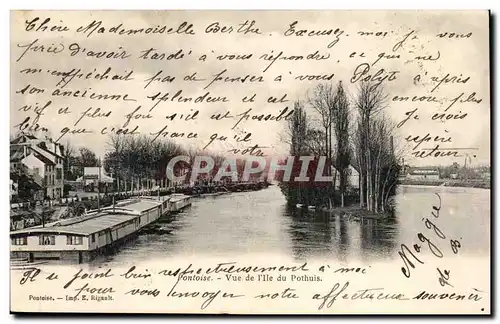 Chère Mademoiselle Berthe. Excusez-moi je vous
prie d'avoir tardé à vous répondre. ce qui ne
m'empêchait pas de penser à vous et à Maggie
Polyte a après
son ancienne splendeur et est encore plus
vif et plus beau si il est possible je crois
que c'est parce qu'il espère
votre retour
CPARAMA
Maggie
B.
Pontoise. — Vue de l'Ile du Pothuis.
Il me prie bien respectueusement à moi
pour vous envoyer notre affectueux souvenir
Pontoise. — Imp. E. Rigault.